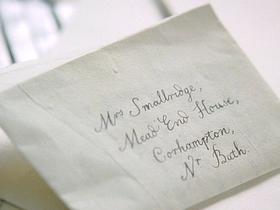 Mrs Smallridge,
Mead End House,
Corhampton,
Nr Bath.